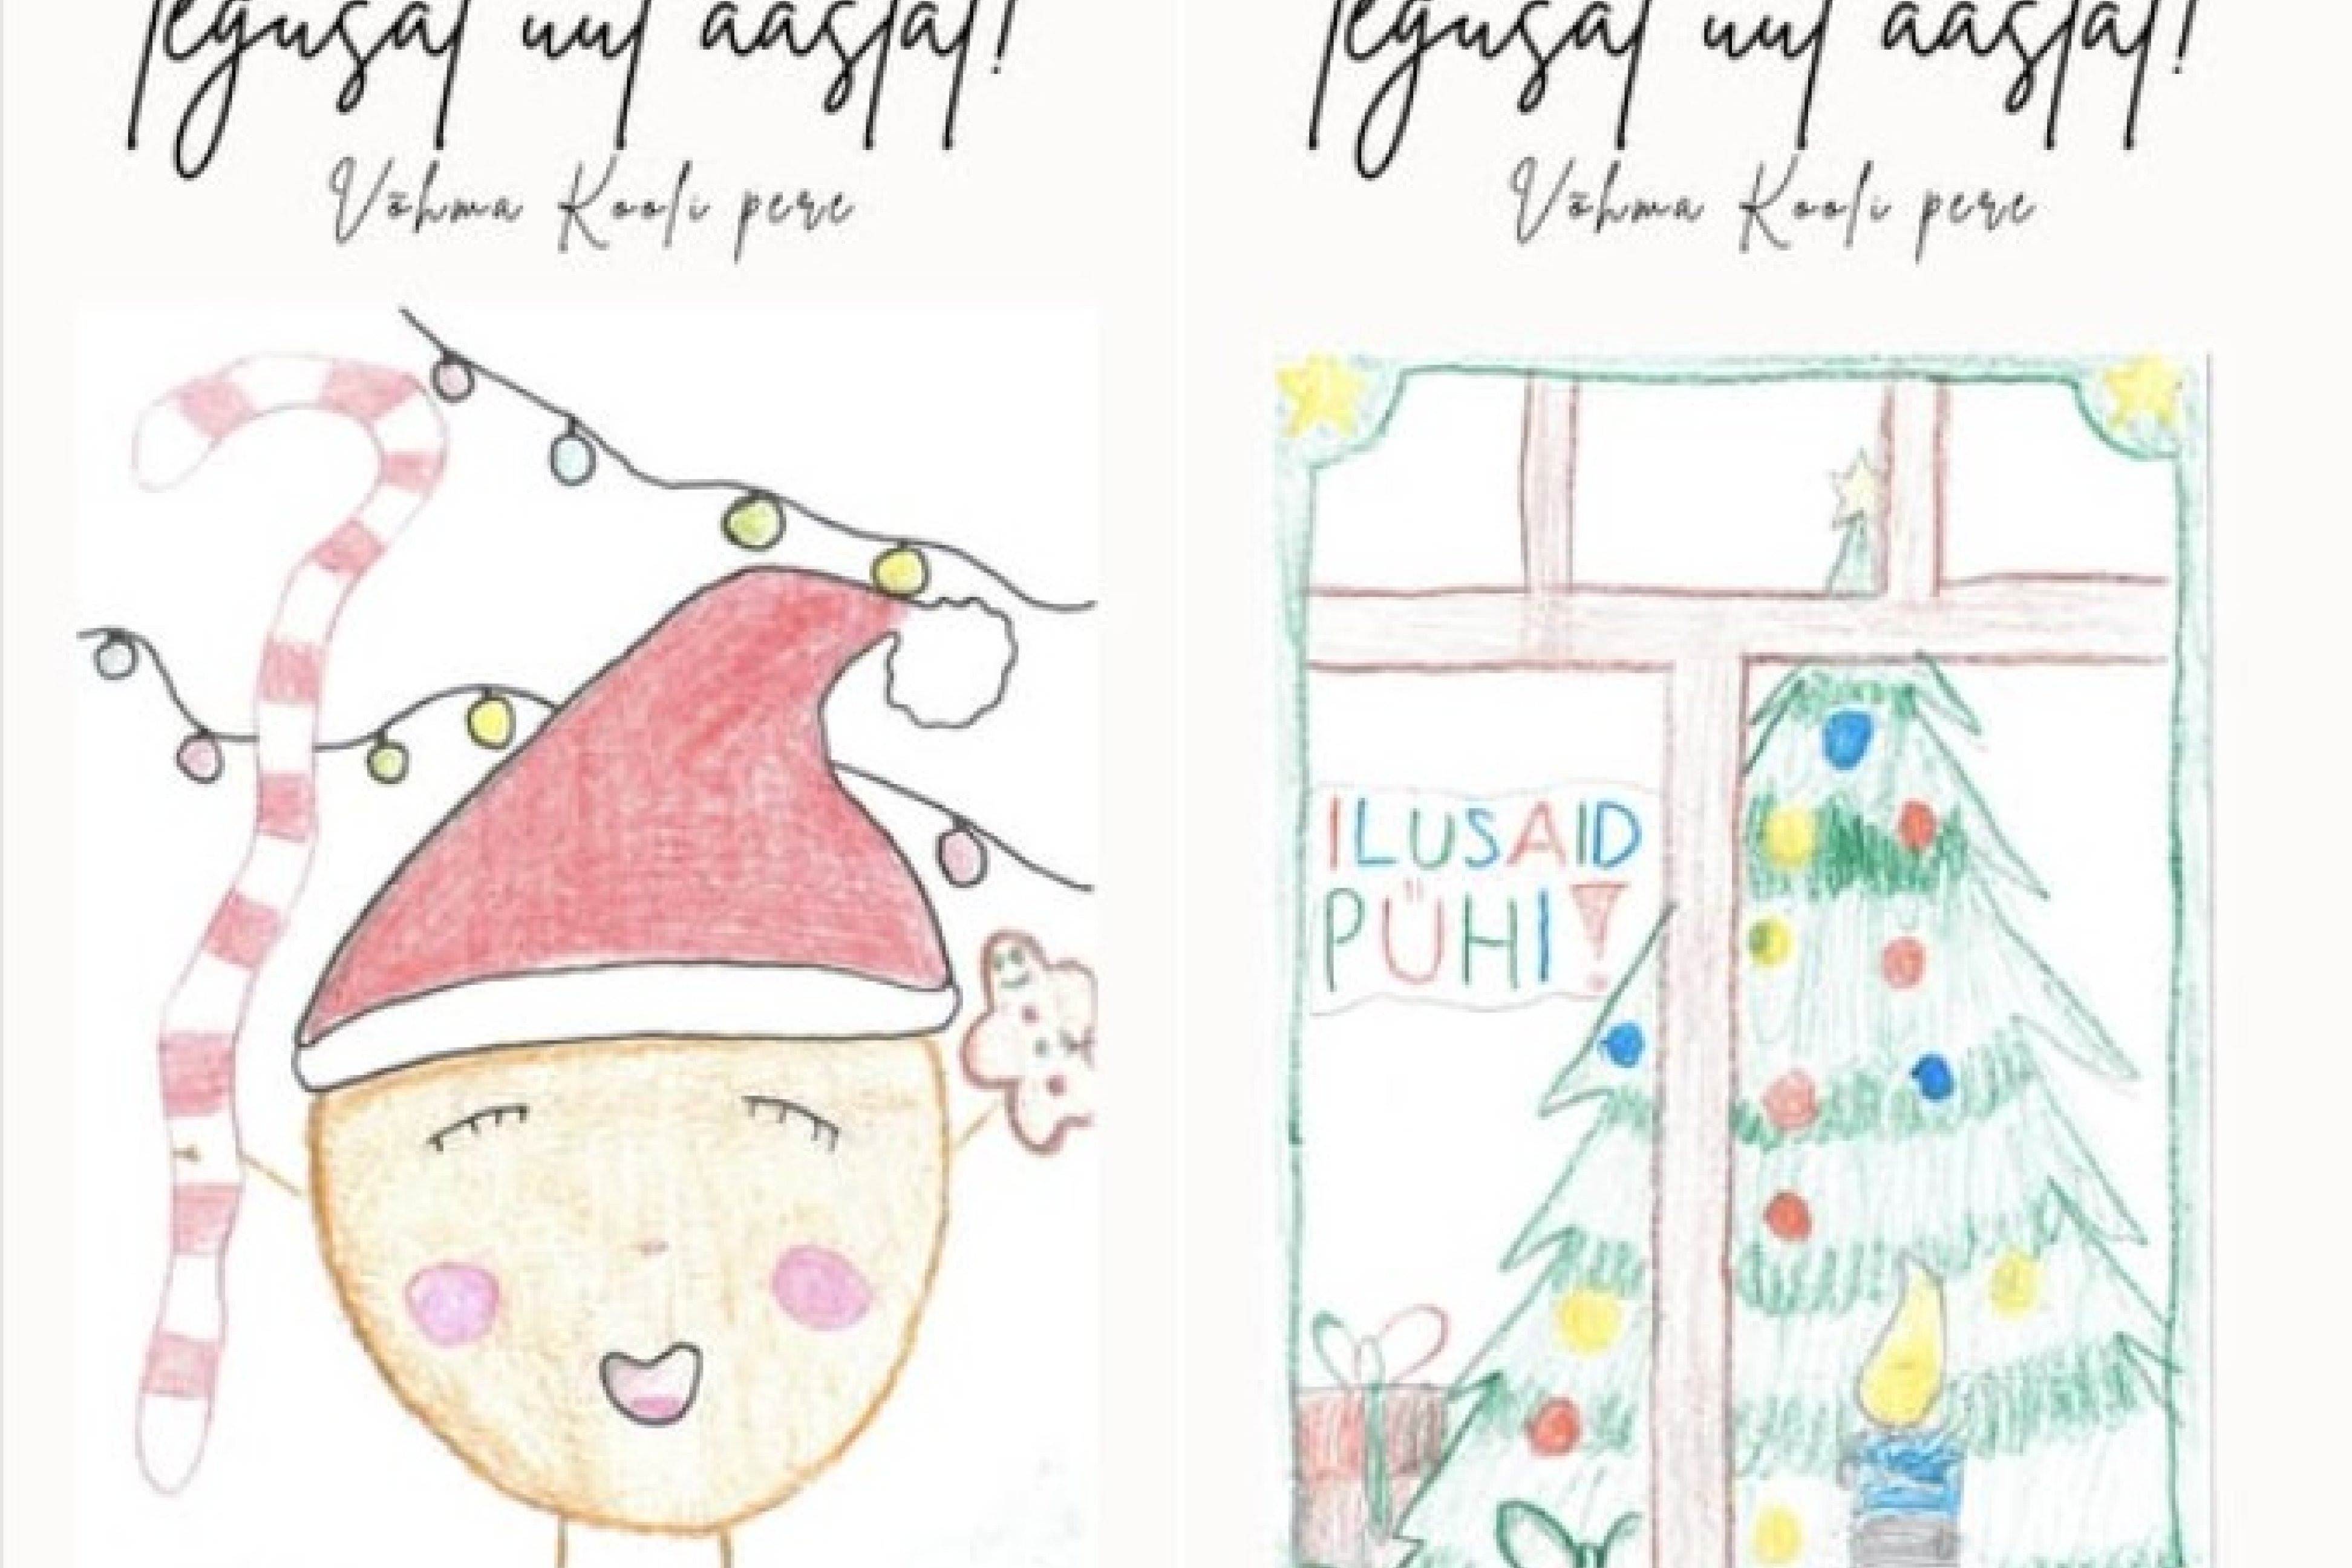 Tegusat uut aastat!
Võhma Kooli pere
Tegusat uut aastat!
Võhma Kooli pere
ILUSAID
PÜHI!